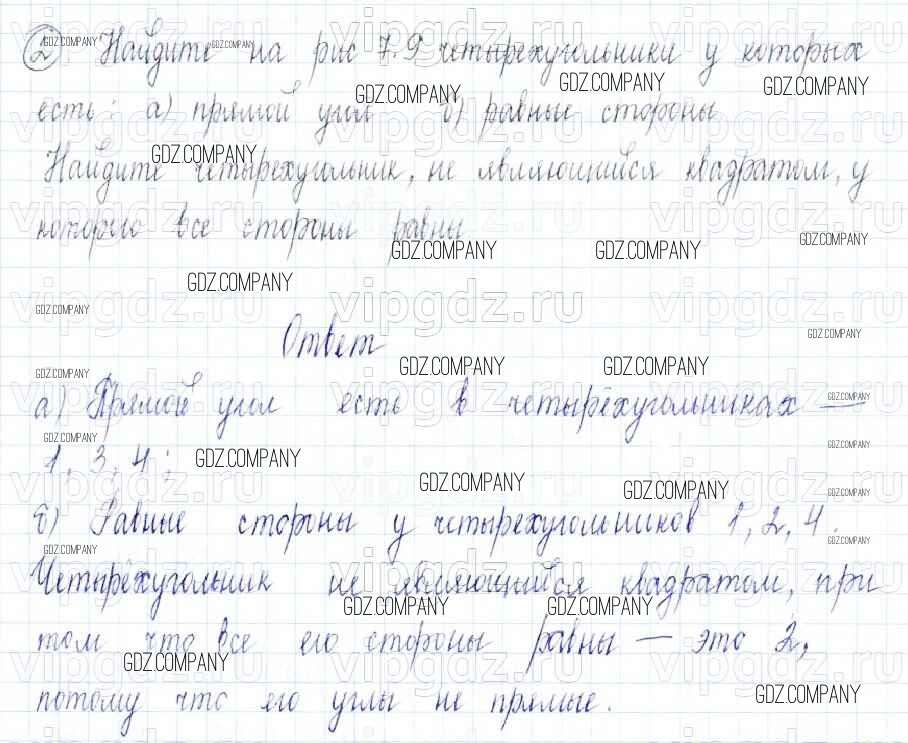 2 Найдите на рис 7.9 четырехугольники у которых
есть: а) прямой угол б) равные стороны
Найдите четырехугольник, не являющийся квадратом, у
которого все стороны равны
Ответ
а) Прямой угол есть в четырёхугольниках —
1, 3, 4;
б) Равные стороны у четырехугольников 1, 2, 4.
Четырёхугольник не являющийся квадратом, при
том что все его стороны равны — это 2,
потому что его углы не прямые.
GDZ.COMPANY
vipgdz.ru